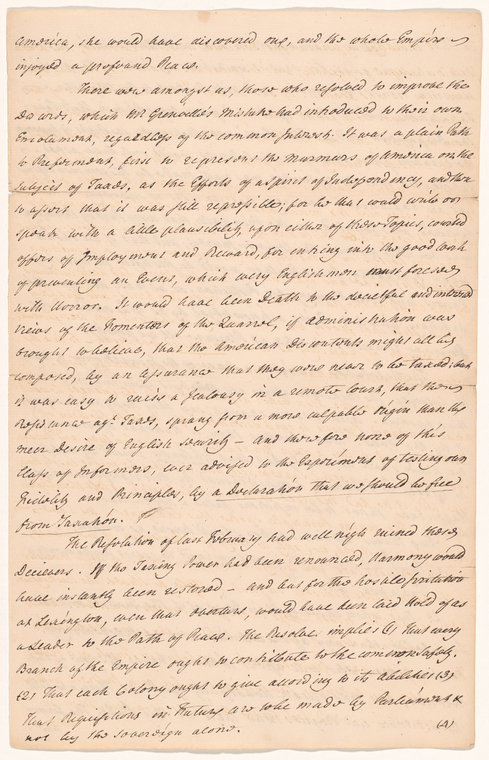 America, she would have discovered one, and the whole Empire
injoyed a profound Peace.
There were amongst us, those who resolved to improve the
Discord, which Mr Grenville's Mistake had introduced to their own
Emolument, regardless of the common Interest. It was a plain Path
to Preferment, first to represent the murmurs of America on the
subject of Taxes, as the Efforts of a spirit of Independency, and then
to assert that it was still repressible; for he that could write or
speak with a little plausibility upon either of these Topics, courted
offers of Employment and Reward, for entring into the good work
of preventing an Event, which every Englishman must foresee
with Horror. It would have been Death to the deceitful and interested
views of the Fomentors of the Quarrel, if administration was
brought to believe, that the American Discontents might all be
composed, by an assurance that they were never to be taxed; but
it was easy to raise a Jealousy in a remote Court, that the
resistance agt. Taxes, sprang from a more culpable origin than the
meer Desire of English security – and therefore none of this
Class of Informers, ever advised to the Experiment of testing our
Fidelity and Principles, by a Declaration that we should be free
from Taxation.
The Resolution of last February had well nigh ruined these
Decievers. If the Taxing Power had been renounced, Harmony would
have instantly been restored – and but for the hostile irritation
at Lexington, even that overture, would have been laid Hold of as
a Leader to the Path of Peace. The Resolve implies (1) That every
Branch of the Empire ought to contribute to the common Safety.
(2) That each Colony ought to give according to its abilities (3)
That Requisitions in Future are to be made by Parliament &
not by the Sovereign alone. (4)